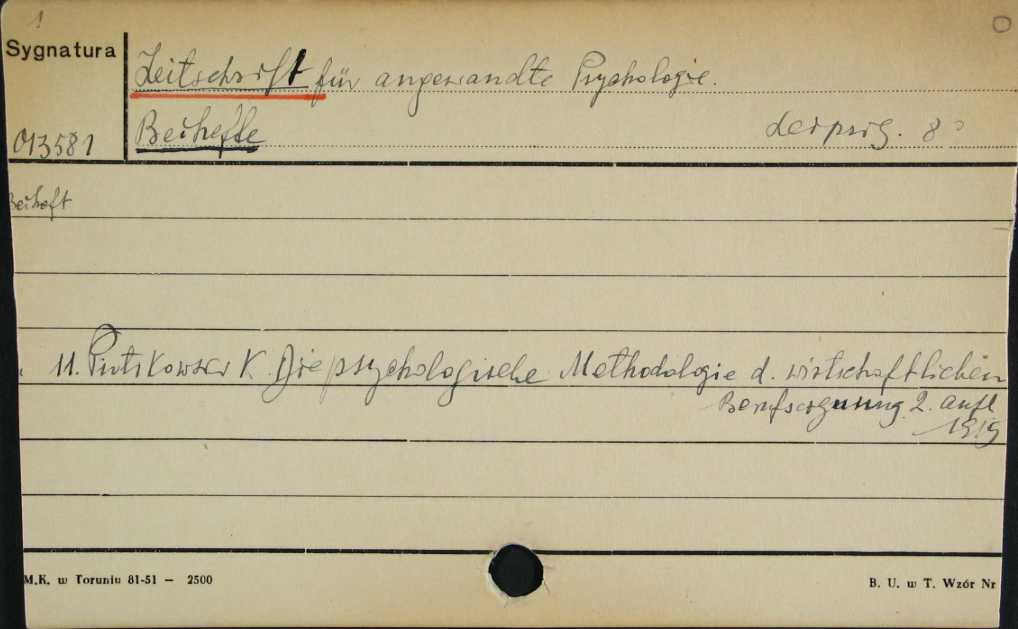 1
O
Sygnatura
Zeitschrift für angewandte Psychologie.
013581
Beihefte Leipzig. 8°
Beiheft
11. Piotrkowski K. Die psychologische Methodologie d. wirtschaftlichen
Berufseignung 2. Aufl
1919
M.K. w Toruniu 81-51 — 2500
B. U. w T. Wzór Nr